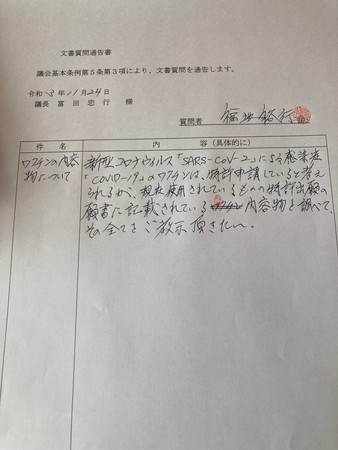 文書質問通告書
議会基本条例第5条第3項により、文書質問を通告します。
令和3年11月24日
議長 富田忠行 様
質問者
件名 内容(具体的に)
ワクチンの内容物について
新型コロナウイルス「SARS-CoV-2」による感染症
「COVID-19」のワクチンは、特許申請していると考え
られるが、現在使用されているものの特許出願の
願書に記載されている内容物を調べて、
その全てをご教示頂きたい。